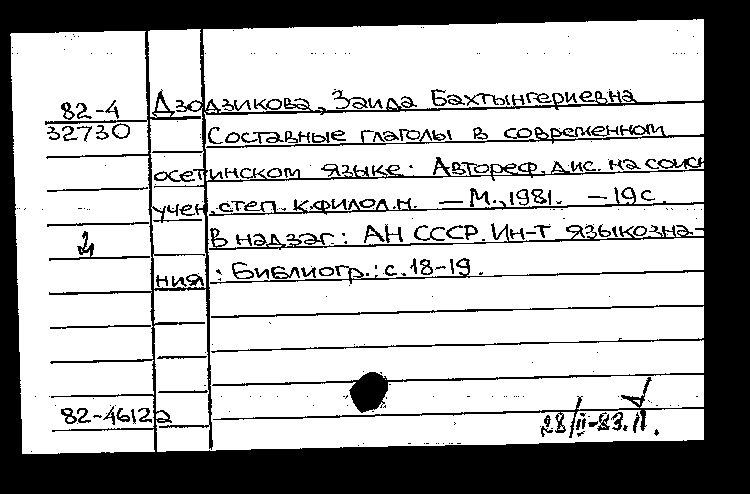 82-4 Дзодзикова, Заида Бахтынгериевна
32730 Составные глаголы в современном
осетинском языке: Автореф. дис. на соиск
учен. степ. к.филол.н. — М., 1981. — 19с.
В надзаг: АН СССР. Ин-т языкозна-
ния: Библиогр.: с. 18-19.
82-46122
28/II-83.